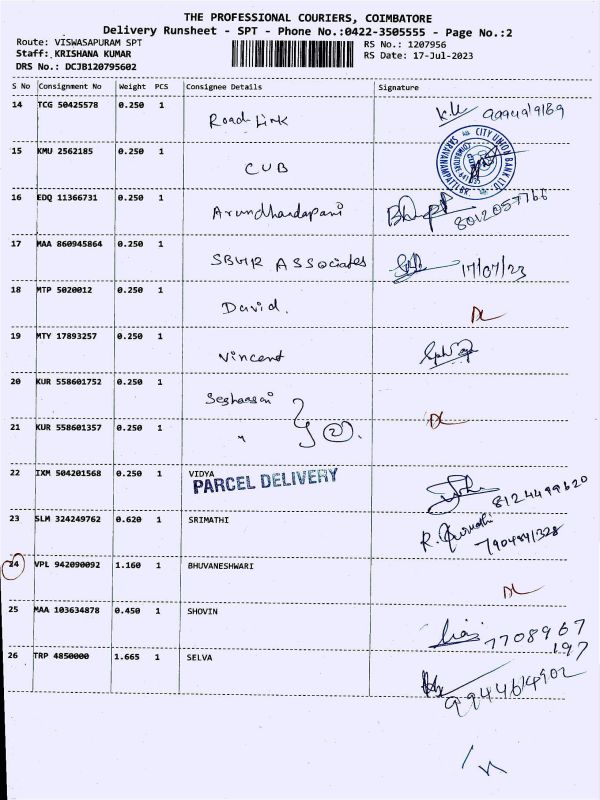 THE PROFESSIONAL COURIERS, COIMBATORE
Delivery Runsheet - SPT - Phone No.:0422-3505555 - Page No.:2
Route: VISWASAPURAM SPT
RS No.: 1207956
Staff: KRISHANA KUMAR
RS Date: 17-Jul-2023
DRS No.: DCJB120795602
S No Consignment No Weight PCS Consignee Details Signature
14 TCG 50425578 0.250 1 Road Link
15 KMU 2562185 0.250 1 CUB
CITY UNION BANK LTD
16 EDQ 11366731 0.250 1 Arundhandapani 8012057766
17 MAA 860945864 0.250 1 ASSociates 17/07/23
18 MTP 5020012 0.250 1 David. DL
19 MTY 17893257 0.250 1 Vincent
20 KUR 558601752 0.250 1 Seshaasai
21 KUR 558601357 0.250 1 " 2 DL
22 IXM 504201568 0.250 1 VIDYA 8124499620
PARCEL DELIVERY
23 SLM 324249762 0.620 1 SRIMATHI
24 VPL 942090092 1.160 1 BHUVANESHWARI DL
25 MAA 103634878 0.450 1 SHOVIN 7708967
197
26 TRP 4850000 1.665 1 SELVA 9944614902